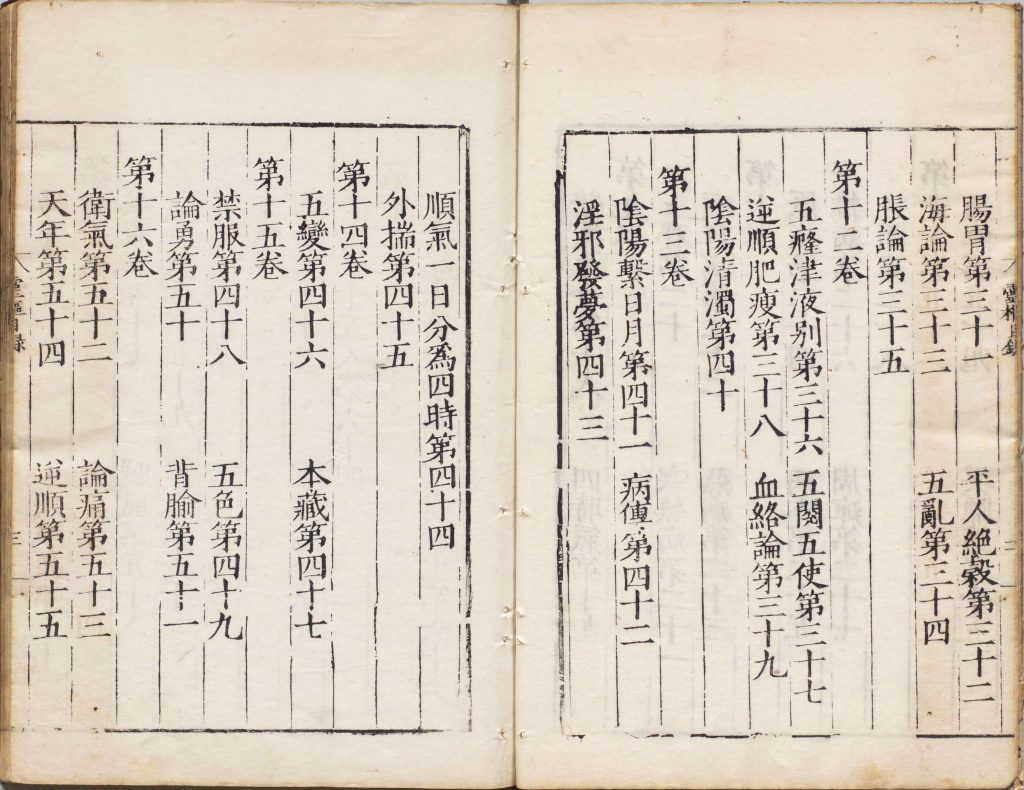 腸胃第三十一　平人絶穀第三十二
海論第三十三　五亂第三十四
脹論第三十五
第十二卷
五癃津液别第三十六　五閱五使第三十七
逆順肥瘦第三十八　血絡論第三十九
陰陽清濁第四十
第十三卷
陰陽繫日月第四十一　病傳第四十二
淫邪發夢第四十三
順氣一日分為四時第四十四
外揣第四十五
第十四卷
五變第四十六　本藏第四十七
第十五卷
禁服第四十八　五色第四十九
論勇第五十　背腧第五十一
第十六卷
衛氣第五十二　論痛第五十三
天年第五十四　逆順第五十五